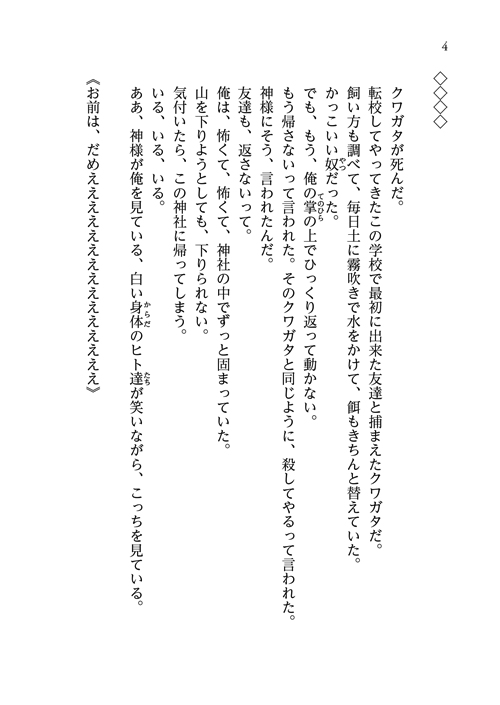 4
◇◇◇◇
クワガタが死んだ。
転校してやってきたこの学校で最初に出来た友達と捕まえたクワガタだ。
飼い方も調べて、毎日土に霧吹きで水をかけて、餌もきちんと替えていた。
かっこいい奴だった。
でも、もう、俺の掌の上でひっくり返って動かない。
もう帰さないって言われた。そのクワガタと同じように、殺してやるって言われた。
神様にそう、言われたんだ。
友達も、返さないって。
俺は、怖くて、怖くて、神社の中でずっと固まっていた。
山を下りようとしても、下りられない。
気付いたら、この神社に帰ってしまう。
いる、いる、いる。
ああ、神様が俺を見ている、白い身体のヒト達が笑いながら、こっちを見ている。
《お前は、だめえええええええええええええええ》